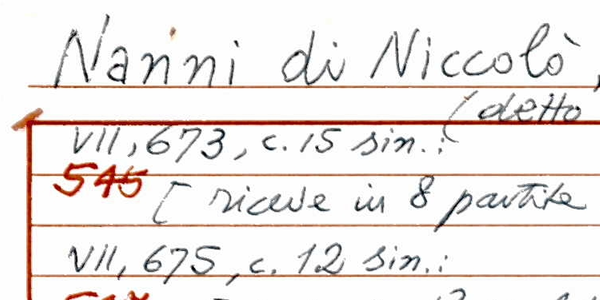 Nanni di Niccolò,
(detto
VII, 673, c. 15 sin.:
545 [ riceve in 8 partite
VII, 675, c. 12 sin.: